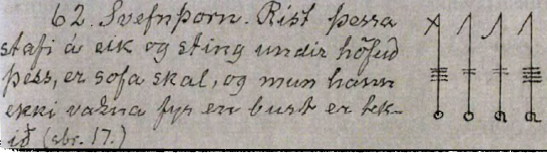 62. Svefnþorn. Ríst þessa
stafi á eik og sting undir höfuð
þess, er sofa skal, og mun hann
ekki vakna fyr en burt er tek-
ið (sbr. 17.)